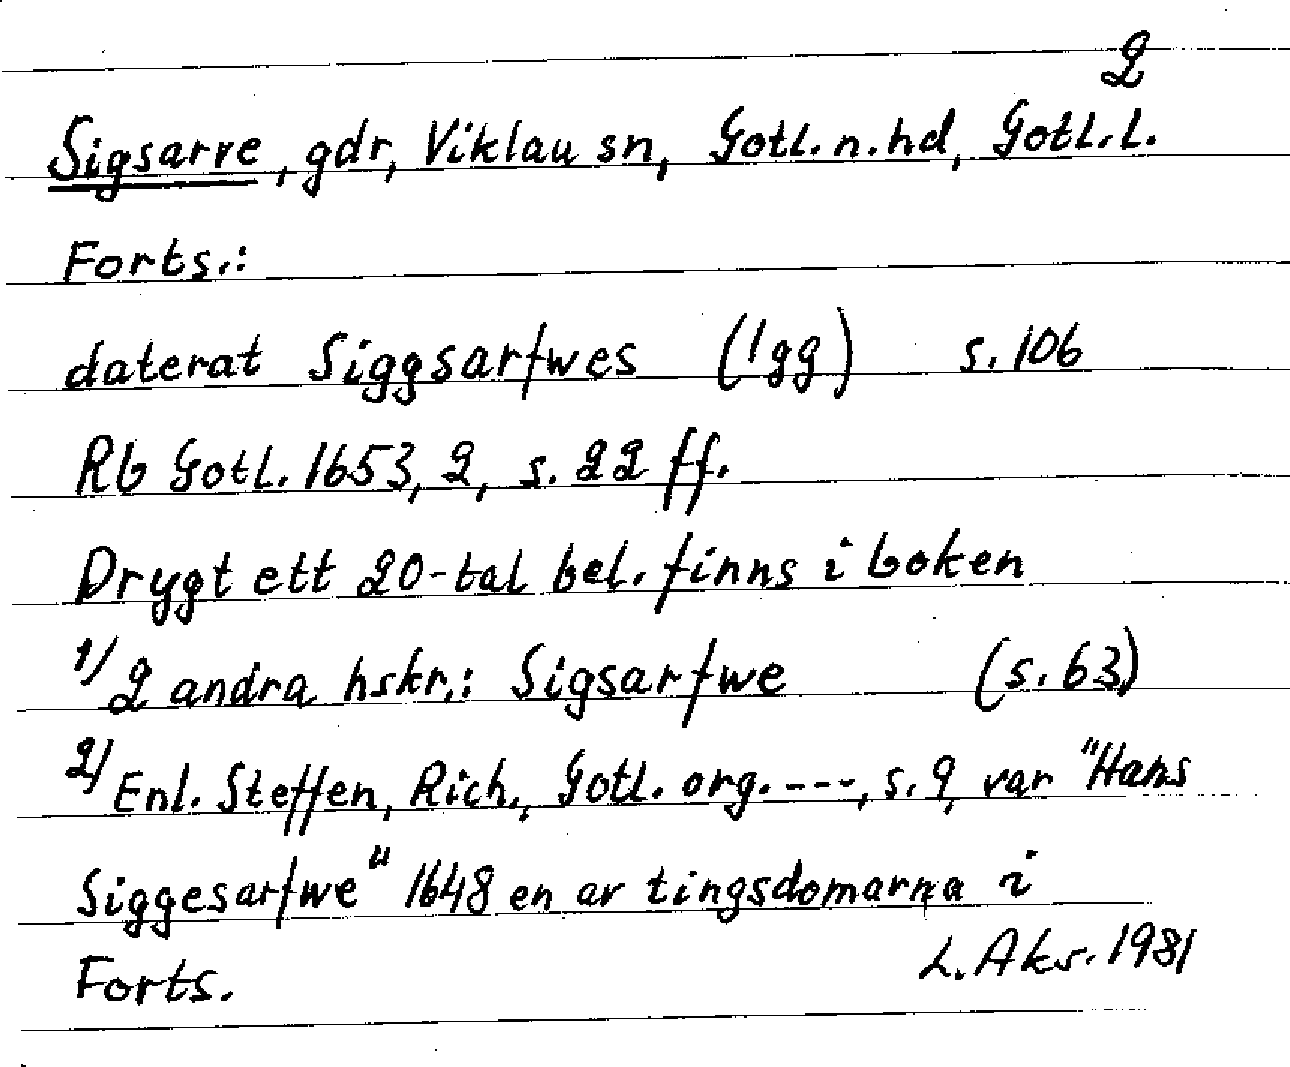 2
Sigsarve, gdr, Viklau sn, Gotl. n. hd, Gotl. l.
Forts.:
daterat Siggsarfwes (!gg) s. 106
Rb Gotl. 1653, 2, s. 22 ff.
Drygt ett 20-tal bel. finns i boken
1/ 2 andra hskr.: Sigsarfwe (s. 63)
2/ Enl. Steffen, Rich., Gotl. org. ----, s. 9, var "Hans
Siggesarfwe" 1648 en av tingsdomarna i
Forts. L. Aks. 1981